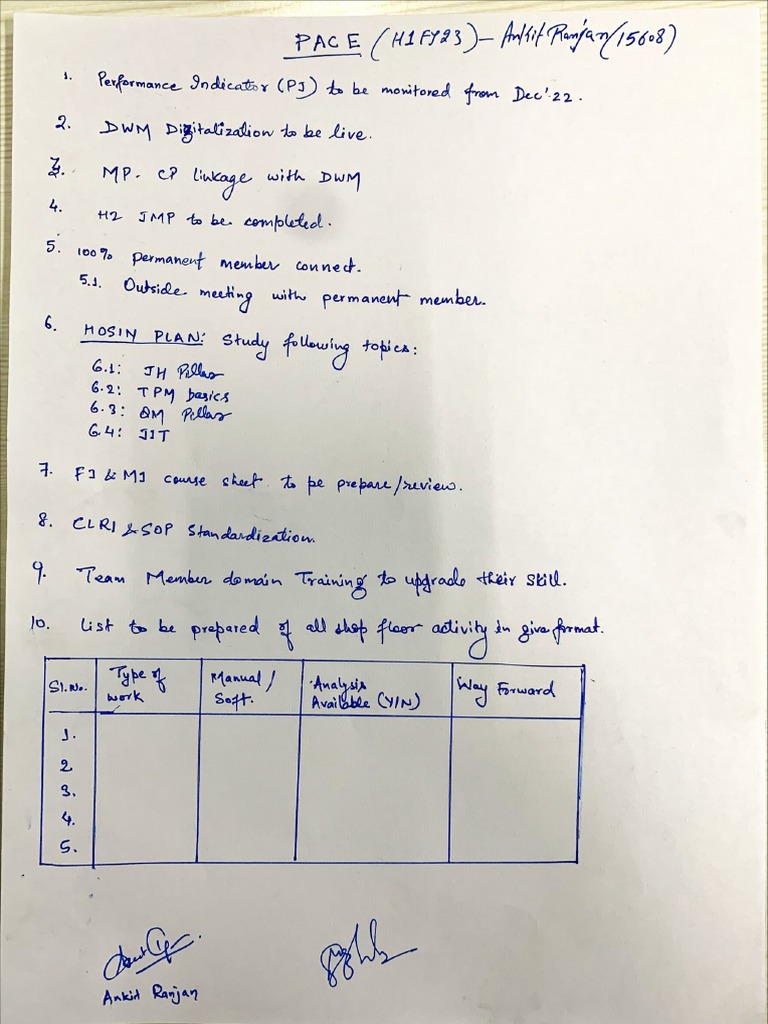 PACE (H1FY23) - Ankit Ranjan (15608)
1. Performance Indicator (PI) to be monitored from Dec'22.
2. DWM Digitalization to be live.
3. MP- CP linkage with DWM
4. H2 JMP to be completed.
5. 100% permanent member connect.
5.1. Outside meeting with permanent member.
6. HOSIN PLAN: Study following topics:
6.1: JH Pillar
6.2: TPM basics
6.3: QM Pillar
6.4: JIT
7. FI & MI course sheet to pe prepare/review.
8. CLRI & SOP Standardization.
9. Team Member domain Training to upgrade their skill.
10. List to be prepared of all shop floor activity in give format.
Sl.No. Type of work Manual / Soft. Analysis Available (Y/N) Way Forward
1.
2
3.
4.
5.
Ankit Ranjan